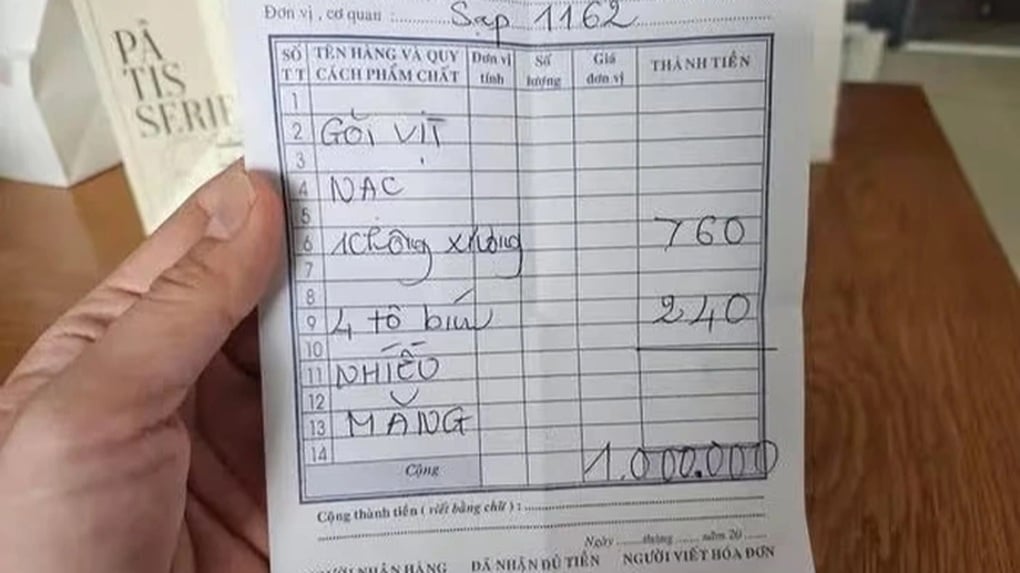 PÂ
TIS
SERIE
Đơn vị, cơ quan : Sạp 1162
SỐ TT TÊN HÀNG VÀ QUY CÁCH PHẨM CHẤT Đơn vị tính Số lượng Giá đơn vị THÀNH TIỀN
1
2 GỎI VỊT
3
4 NẠC
5
6 không xương 760
7
8
9 4 tô bún 240
10
11 NHIỀU
12
13 MĂNG
14
Cộng 1.000.000
Cộng thành tiền ( viết bằng chữ ) :
Ngày tháng năm 20
NGƯỜI NHẬN HÀNG ĐÃ NHẬN ĐỦ TIỀN NGƯỜI VIẾT HÓA ĐƠN